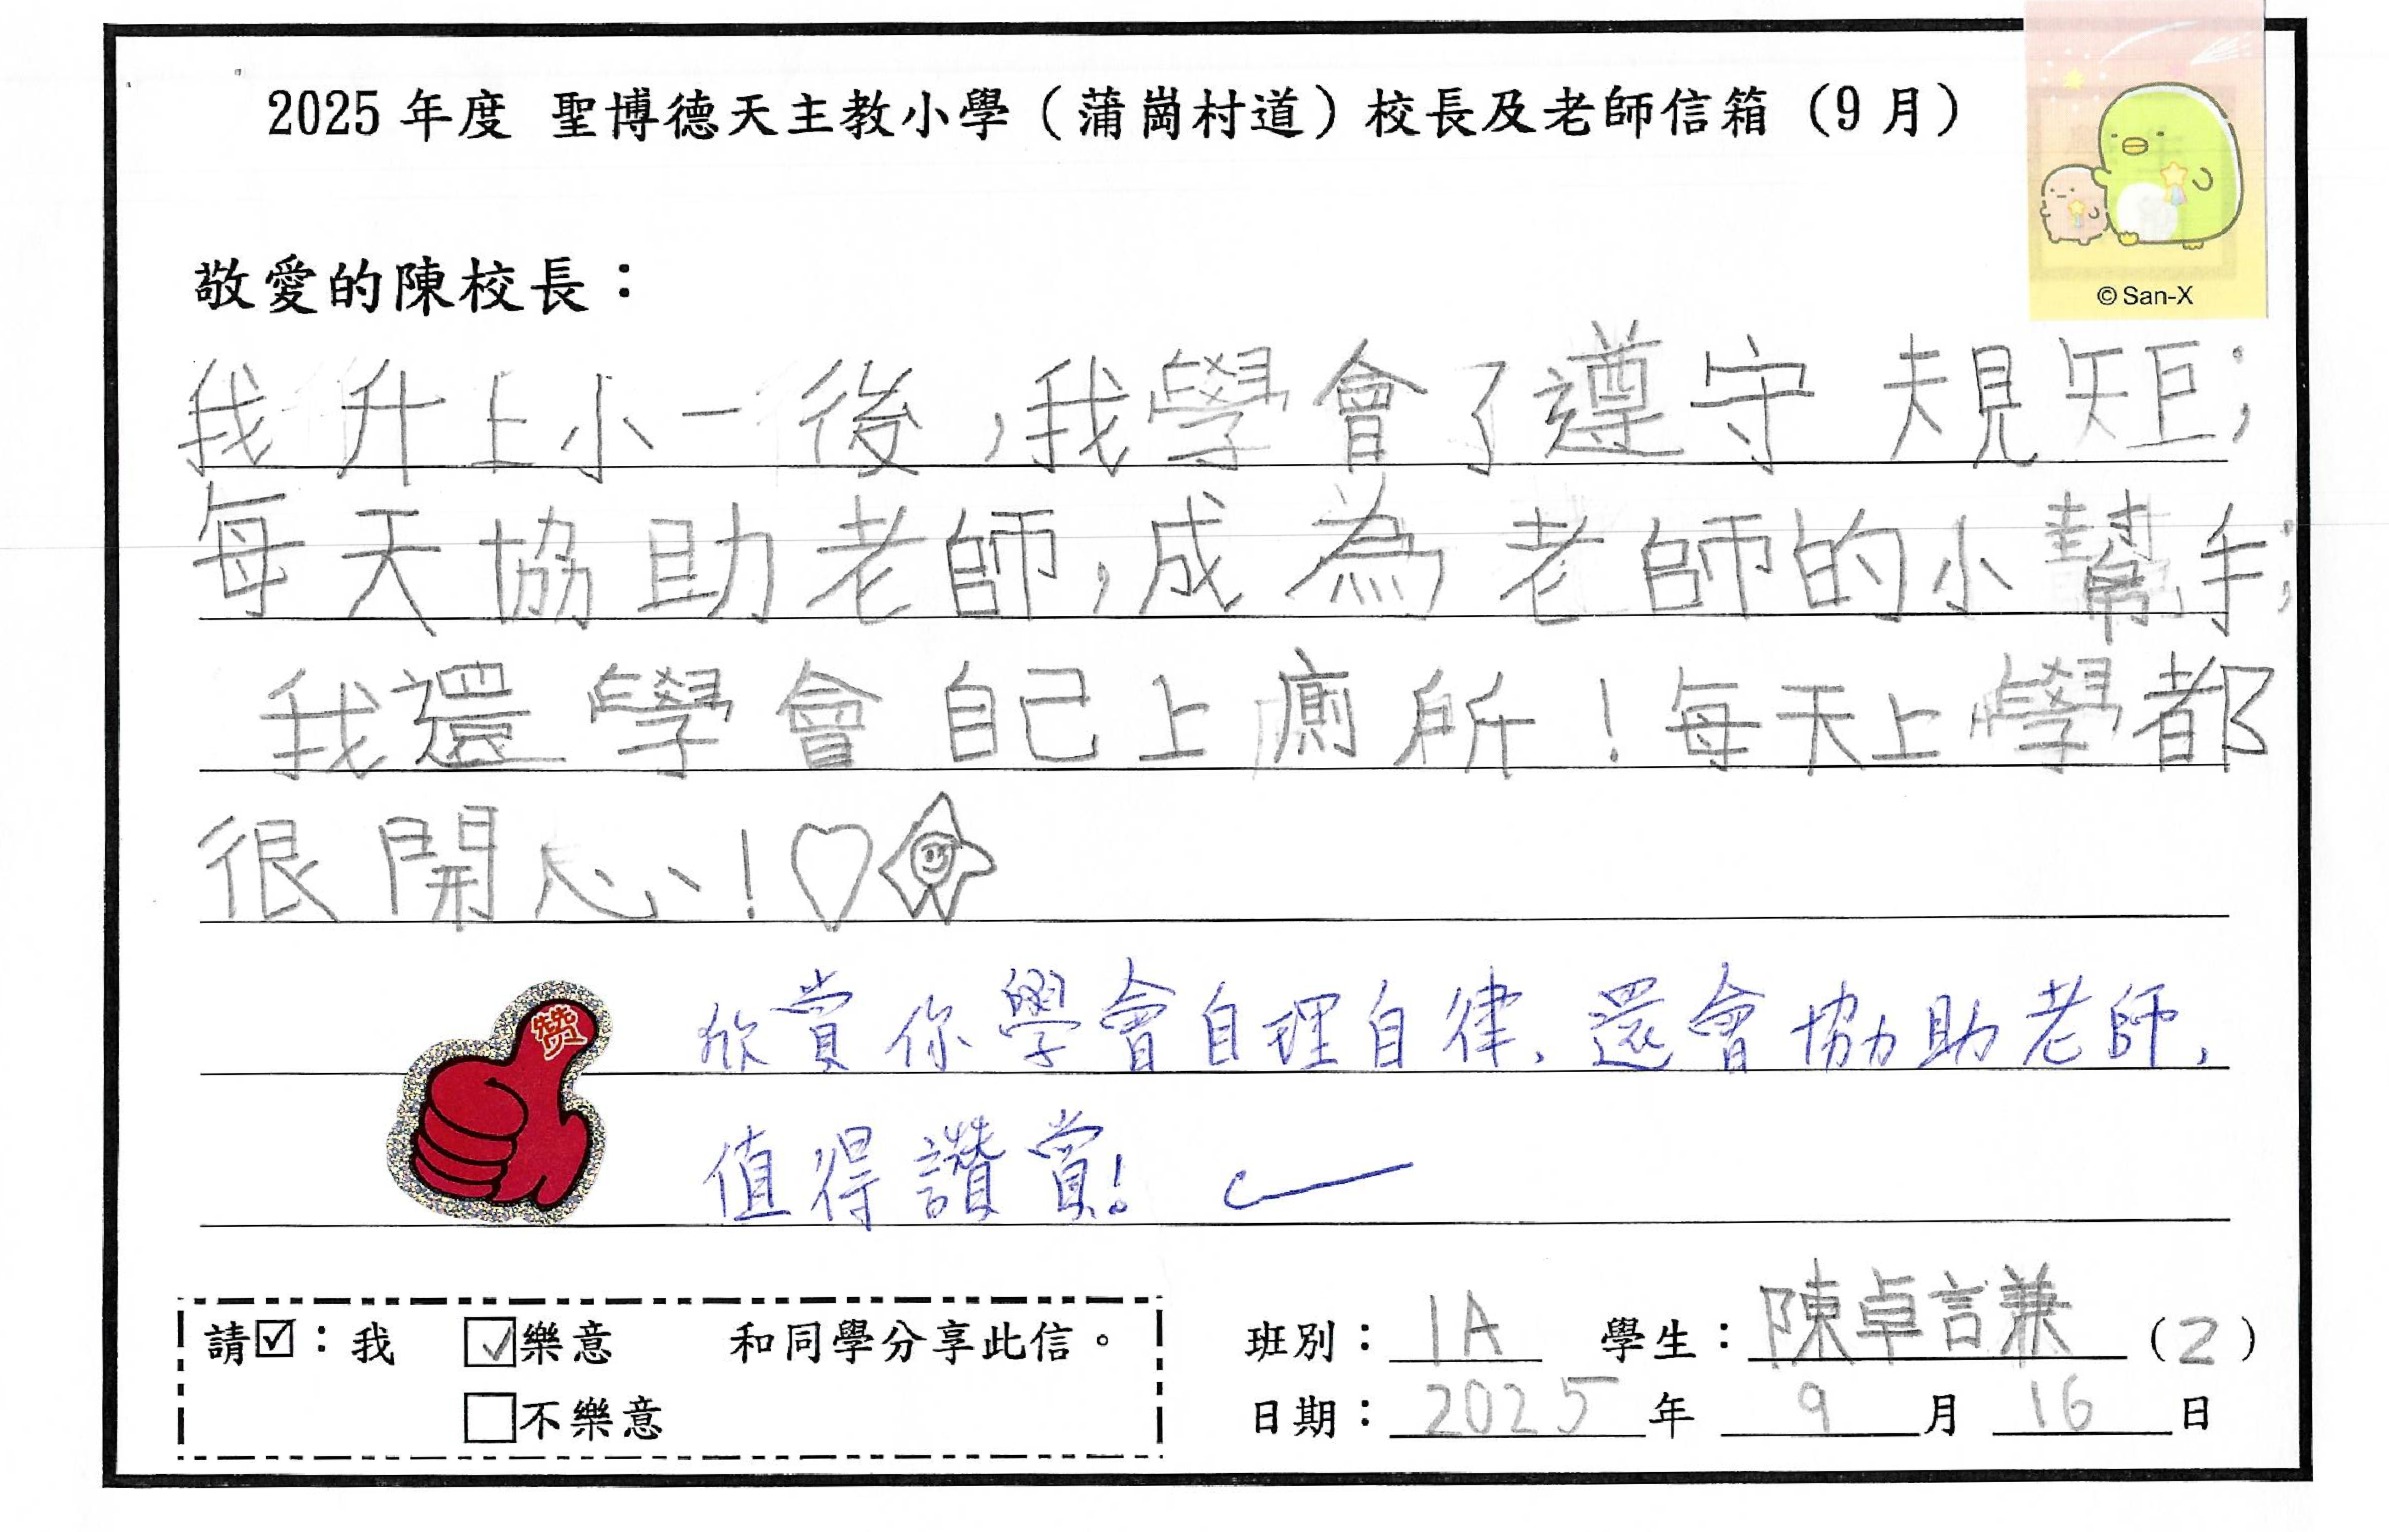 2025 年度 聖博德天主教小學（蒲崗村道）校長及老師信箱（9 月）
© San-X
敬愛的陳校長：
我升上小一後，我學會了遵守規矩；
每天協助老師，成為老師的小幫手；
我還學會自己上廁所！每天上學都
很開心！
赞
欣賞你學會自理自律、還會協助老師，
值得讚賞！
請☑：我 ☑樂意 和同學分享此信。
□不樂意
班別：1A 學生：陳卓謙（2）
日期：2025 年 9 月 16 日